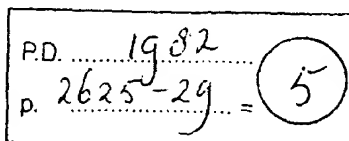 P.D. 1982
p. 2625-29 = 5